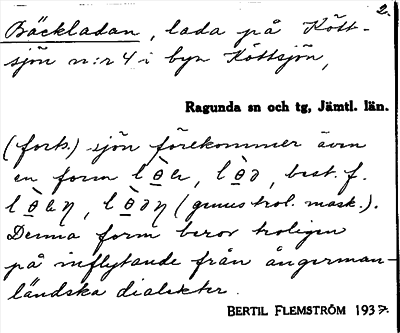 2.
Bäckladan, lada på Kött-
sjön n:r 4 i byn Köttsjön,
Ragunda sn och tg, Jämtl. län.
(forts.) sjön förekommer även
en form
best. f.
(genus trol. mask.).
Denna form beror troligen
på inflytande från ångerman-
ländska dialekter.
BERTIL FLEMSTRÖM 1937.